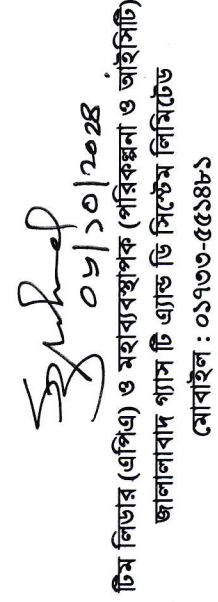 ০৬/১০/২০২৪
টিম লিডার (এপিএ) ও মহাব্যবস্থাপক (পরিকল্পনা ও আইসিটি)
জালালাবাদ গ্যাস টি এ্যান্ড ডি সিস্টেম লিমিটেড
মোবাইল : ০১৭৩৩-৫৫১৪৮১